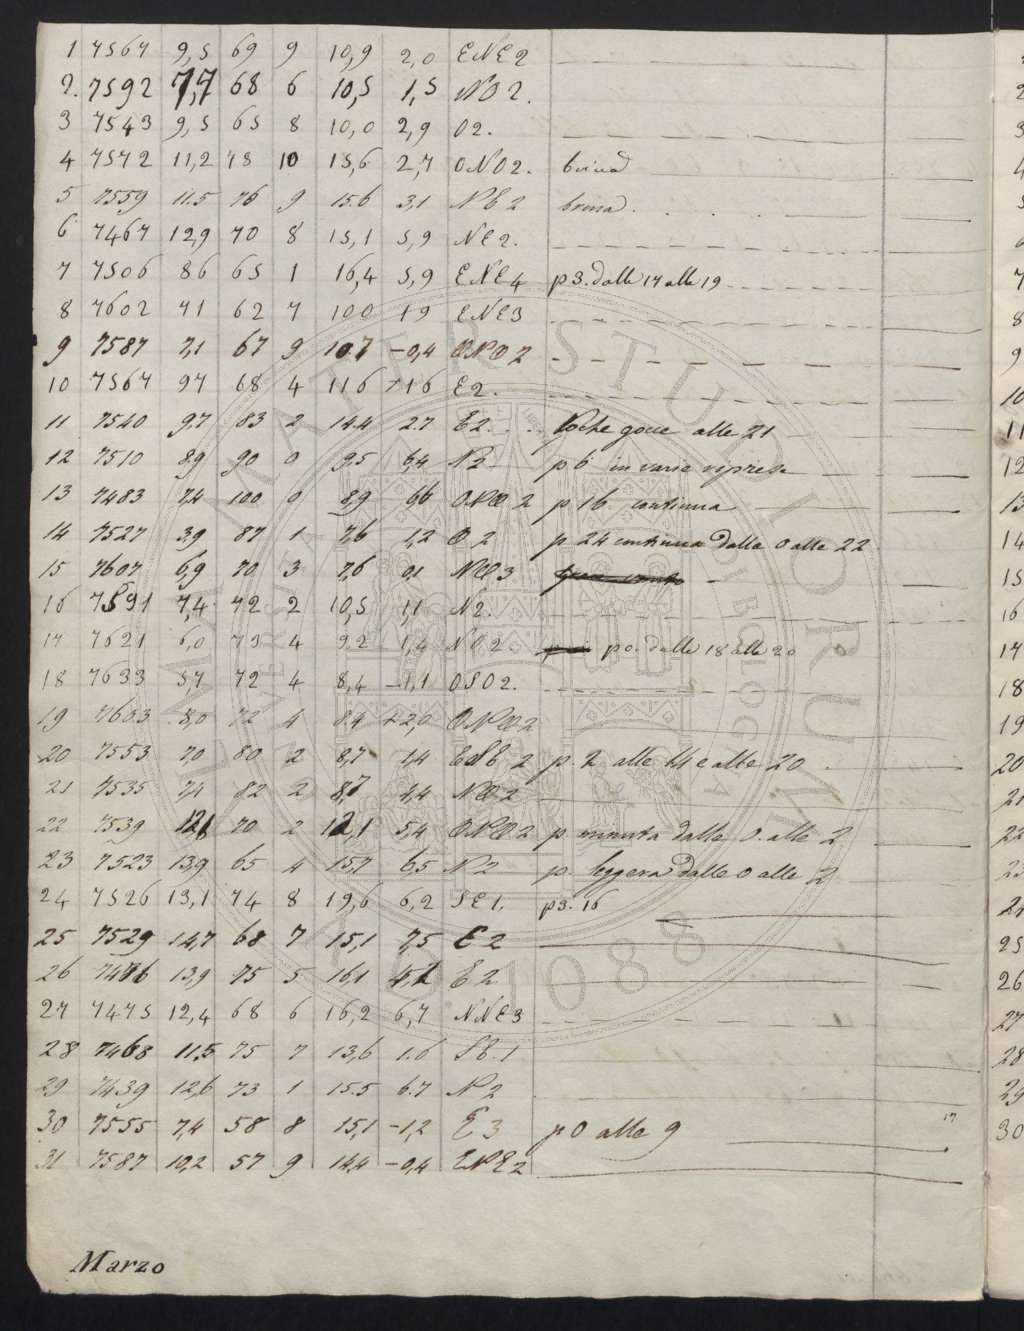 1 7567 9,5 69 9 10,9 2,0 ENE2
2. 7592 7,7 68 6 10,5 1,5 NO2.
3 7543 9,5 65 8 10,0 2,9 O2.
4 7572 11,2 78 10 15,6 2,7 ONO2. brina
5 7559 11.5 76 9 15.6 3,1 NE2 brina
6 7467 12,9 70 8 15,1 5,9 NE2.
7 7506 86 65 1 16,4 5,9 ENE4 p3. dalle 17 alle 19
8 7602 71 62 7 100 19 ENE3
9 7587 7,1 67 9 10.7 -0,4 ONO2
10 7567 97 68 4 116 +16 E2.
11 7540 9,7 83 2 14.4 2.7 E2. Poche gocce alle 21
12 7510 89 90 0 9,5 6,4 N2 p6 in varie riprese
13 7483 7,4 100 0 89 66 ONO2 p16 continua
14 7527 39 87 1 7,6 1,2 O2 p 24 continua dalle 0 alle 22
15 7607 6,9 70 3 7,6 01 NE3
16 7591 7,4 72 2 10,5 1,1 N2.
17 7621 6,0 75 4 92 1,4 NO2 p0. dalle 18 alle 20
18 7633 5,7 72 4 8,4 -1,1 OSO2.
19 7603 8,0 72 4 84 +2,0 ONO2
20 7553 7,0 80 2 8,7 1,4 ESE2 p. 2 alle 14 e alle 20
21 7535 7,4 82 2 8,7 4,4 NO2
22 7539 12,1 70 2 12,1 5,4 ONO2 p minuta dalle 0. alle 2
23 7523 13,9 65 4 15,7 6,5 N2 p. leggera dalle 0 alle 2
24 7526 13,1 74 8 19,6 6,2 SE1. p3. 16
25 7529 14,7 68 7 15,1 7,5 E2
26 7476 13,9 75 5 16,1 4,2 E2
27 7475 12,4 68 6 16,2 6,7 NNE3
28 7468 11.5 75 7 13,6 1.6 SE.1
29 7439 12,6 73 1 15.5 6.7 N2
30 7555 7,4 58 8 15,1 -1,2 E3 p0 alle 9 17
31 7587 10,2 57 9 14,4 -0,4 ENE2
Marzo
ALMA MATER STUDIORUM
UNIVERSITÀ DI BOLOGNA
A.D. 1088